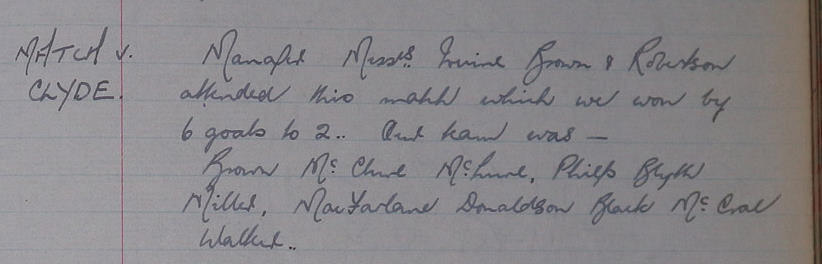 MATCH v. Manager Messrs. Irvine Brown & Robertson
CLYDE. attended this match which we won by
6 goals to 2.. Our team was —
Brown McClure McLure, Philip Blyth
Miller, MacFarlane Donaldson Black
Walker..